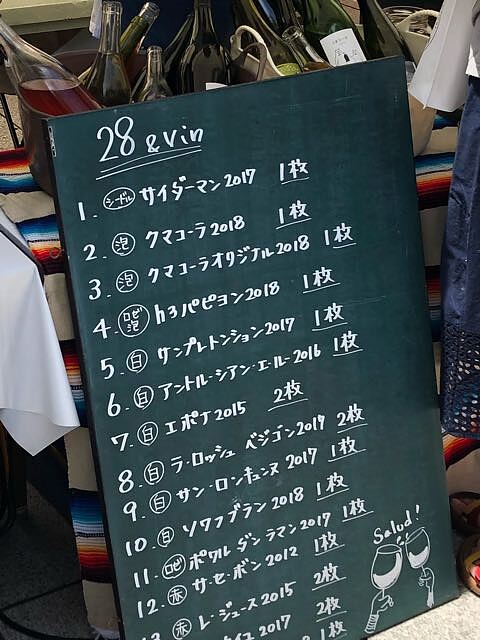 28 &vin
1. シードル サイダーマン2017 1枚
2. 泡 クマコーラ2018 1枚
3. 泡 クマコーラオリジナル2018 1枚
4. ロゼ泡 h3パピヨン2018 1枚
5. 白 サンプレトンション2017 1枚
6. 白 アントル・シアン・エ・ルー2016 1枚
7. 白 エポナ2015 2枚
8. 白 ラ・ロッシュ ベジゴン2017 2枚
9. 白 サン・ロンキュンヌ2017 1枚
10. 白 ソワフブラン2018 1枚
11. ロゼ ポワル ダン ラマン2017 1枚
12. 赤 サ・セ・ボン2012 1枚
13. 赤 レ・ジュース2015 2枚
2017 2枚
1枚
Salud!